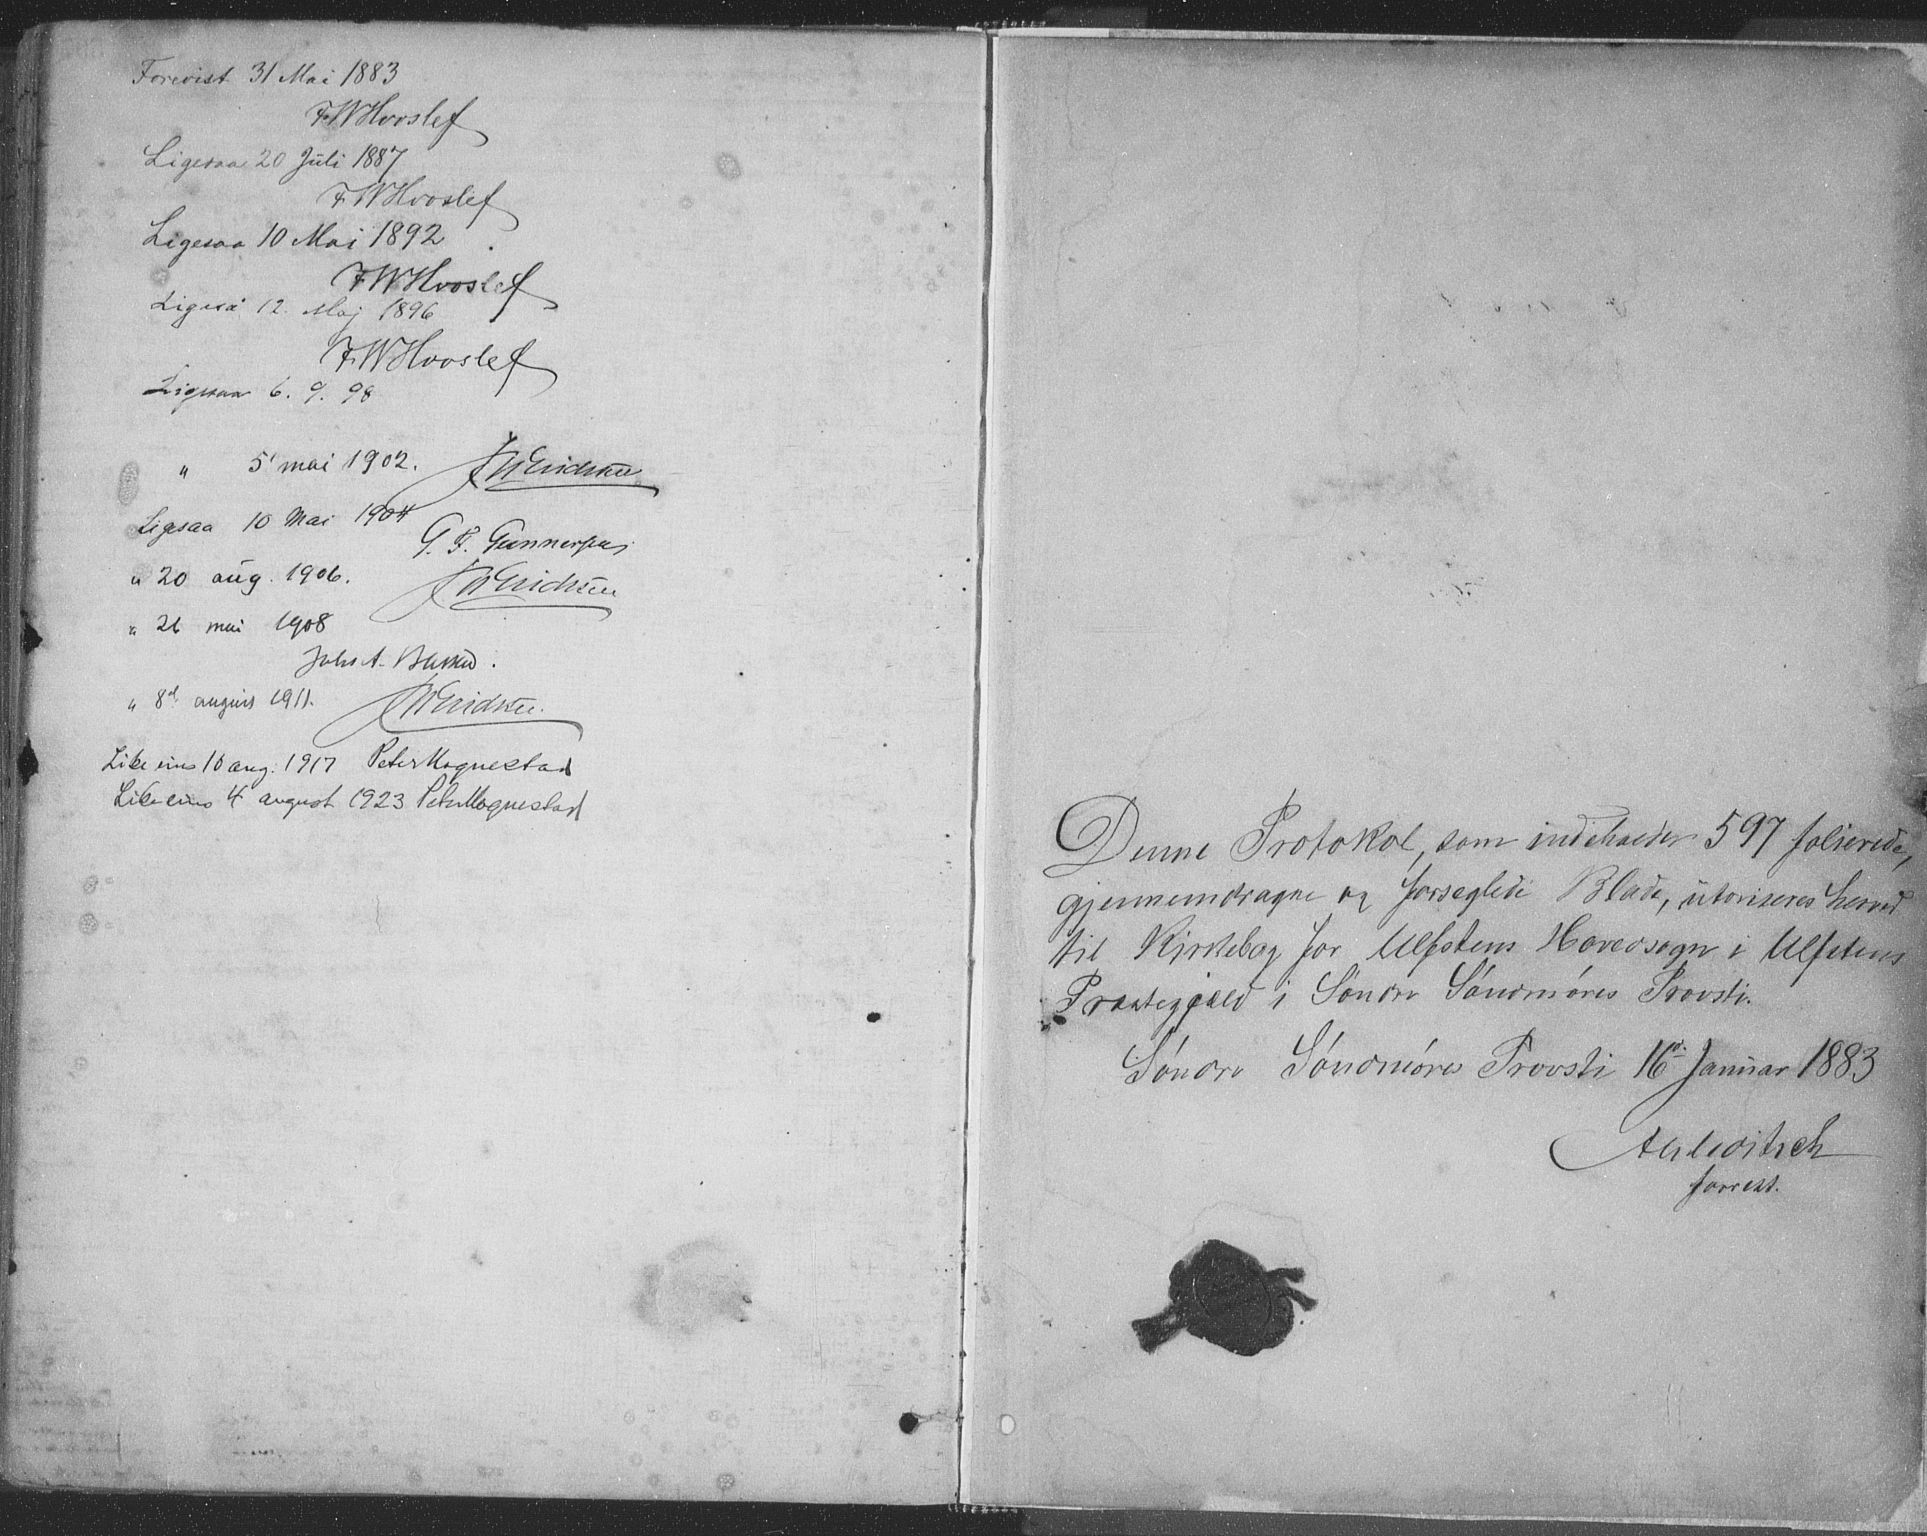 Forevist 31 Mai 1883
FWHvoslef
Ligesaa 20 Juli 1887
FWHvoslef
Ligesaa 10 Mai 1892
FWHvoslef
Ligeså 12. Maj 1896
FWHvoslef
Ligesaa 6. 9. 98
" 5' mai 1902. JWEricksen
Ligesaa 10 Mai 1904
G. F. Gunnersen
" 20 aug. 1906. JWEricksen
" 26 mai 1908
Johs A.
" 8d august 1911. JWEricksen.
Like eins 10 aug. 1917 Peter Mognestad
Like eins 4 august 1923 Peter Mognestad
Denne Protokol, som indeholder 597 folierede,
gjennemdragne og forseglede Blade, utoriseres herved
til Kirkebog for Ulfstens Hovedsogn i Ulfstens
Præstegjeld i Søndre Søndmøres Provsti.
Søndre Søndmøres Provsti 16d. Januar 1883